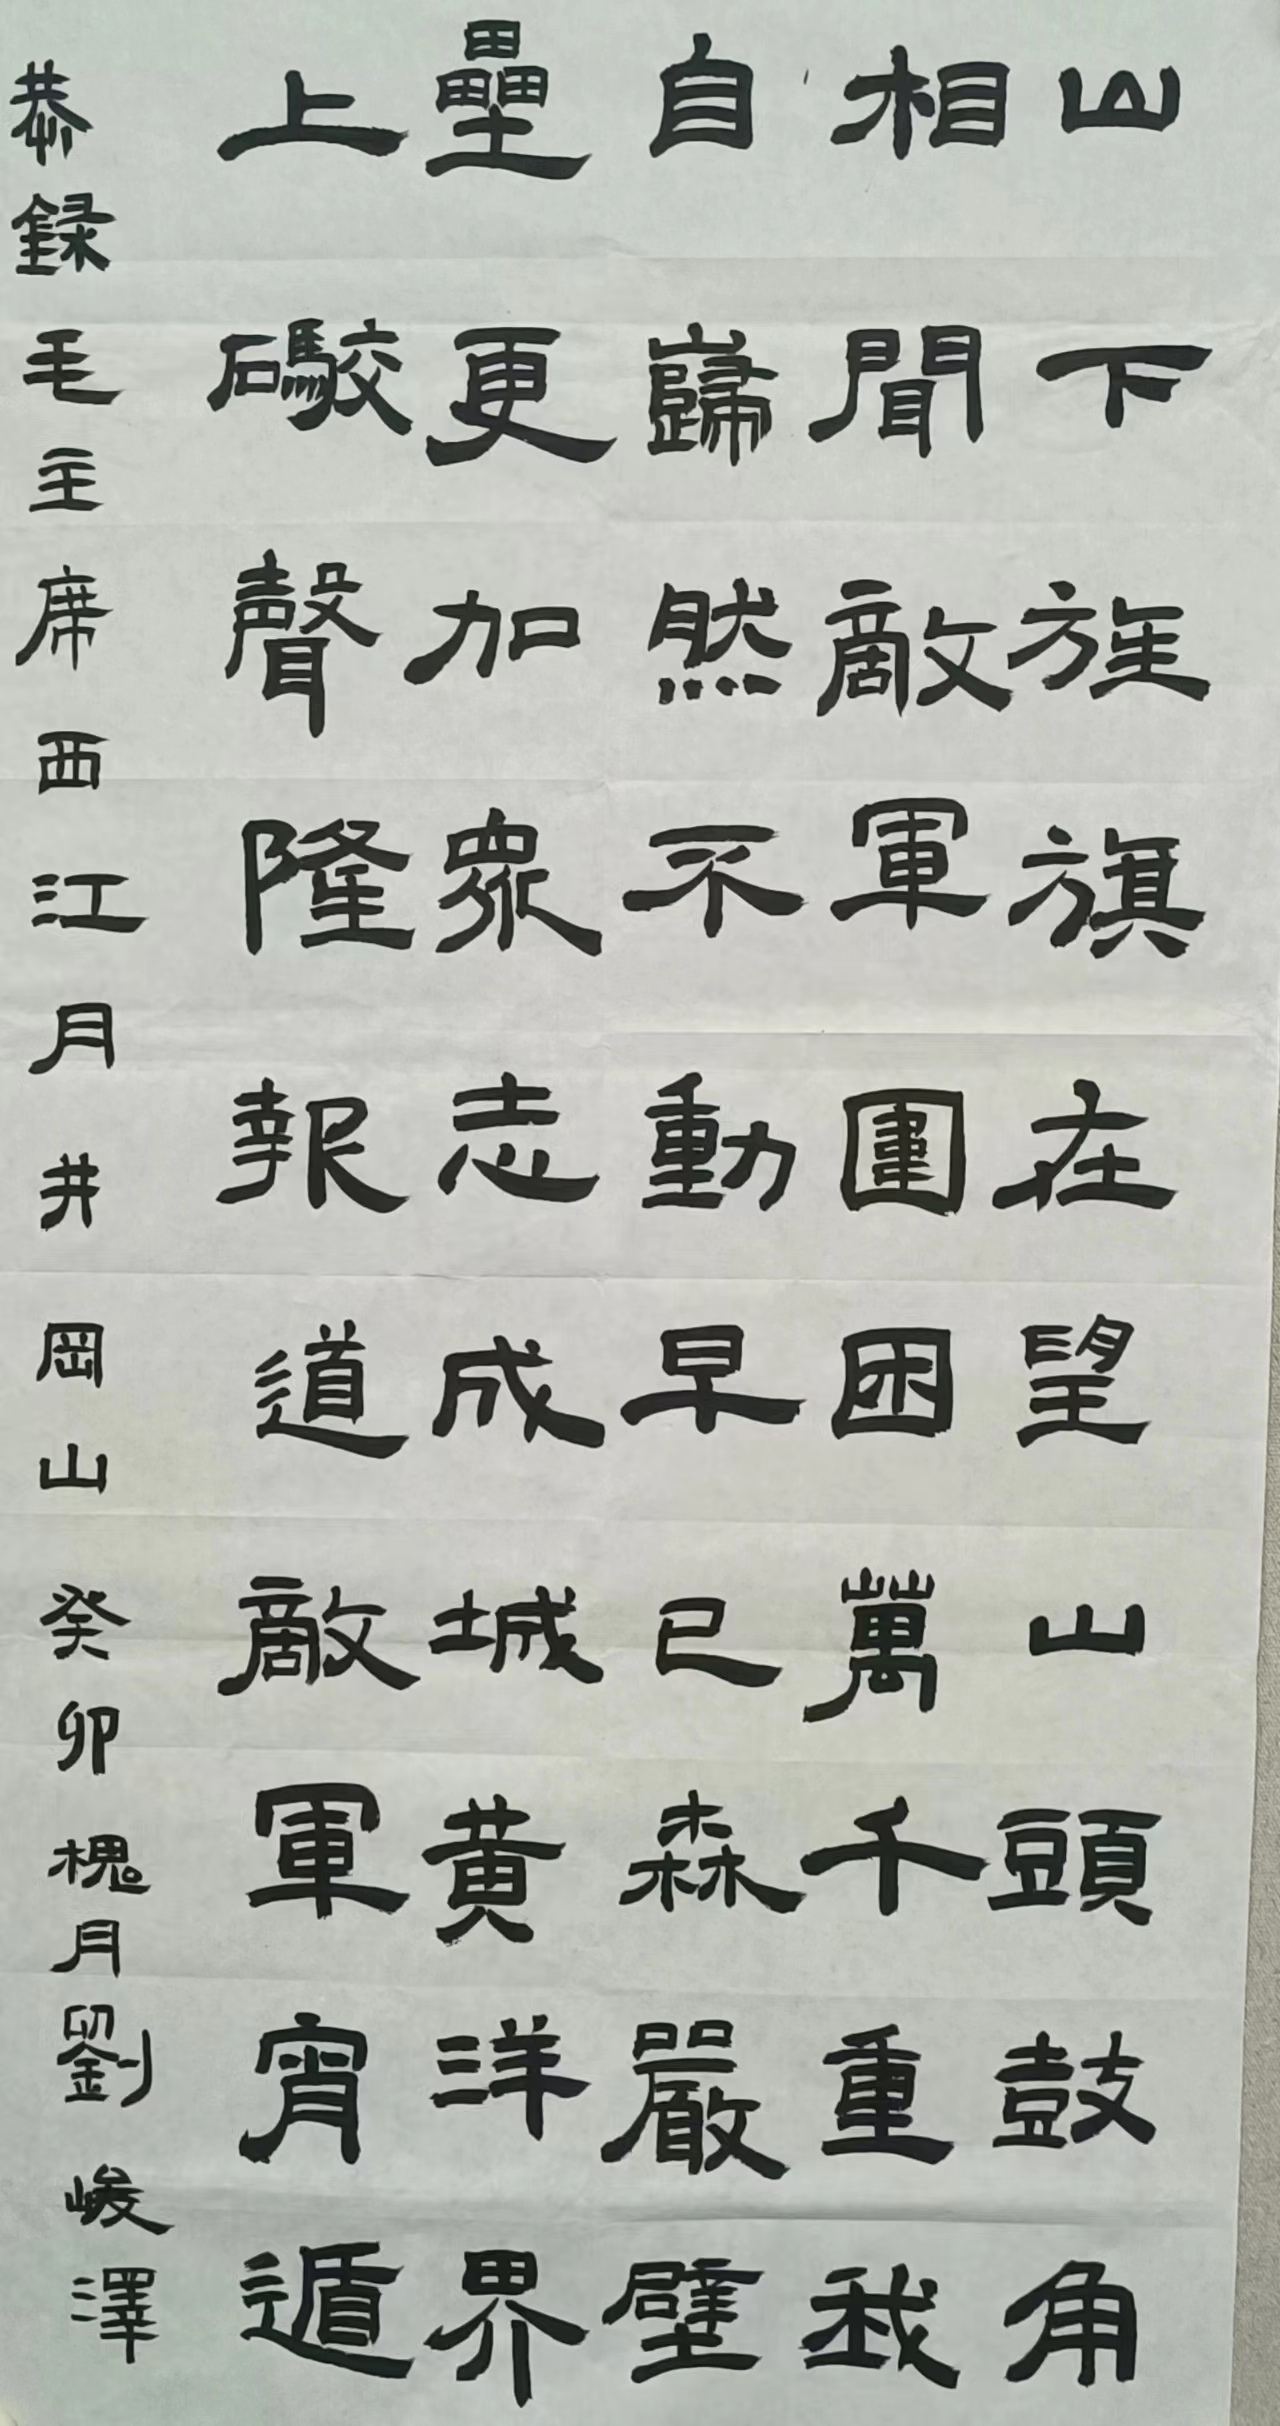 山下旌旗在望山頭鼓角
相聞敵軍圍困萬千重我
自巋然不動早已森嚴壁
壘更加眾志成城黃洋界
上礮聲隆報道敵軍宵遁
恭録毛主席西江月井岡山癸卯槐月劉峻澤